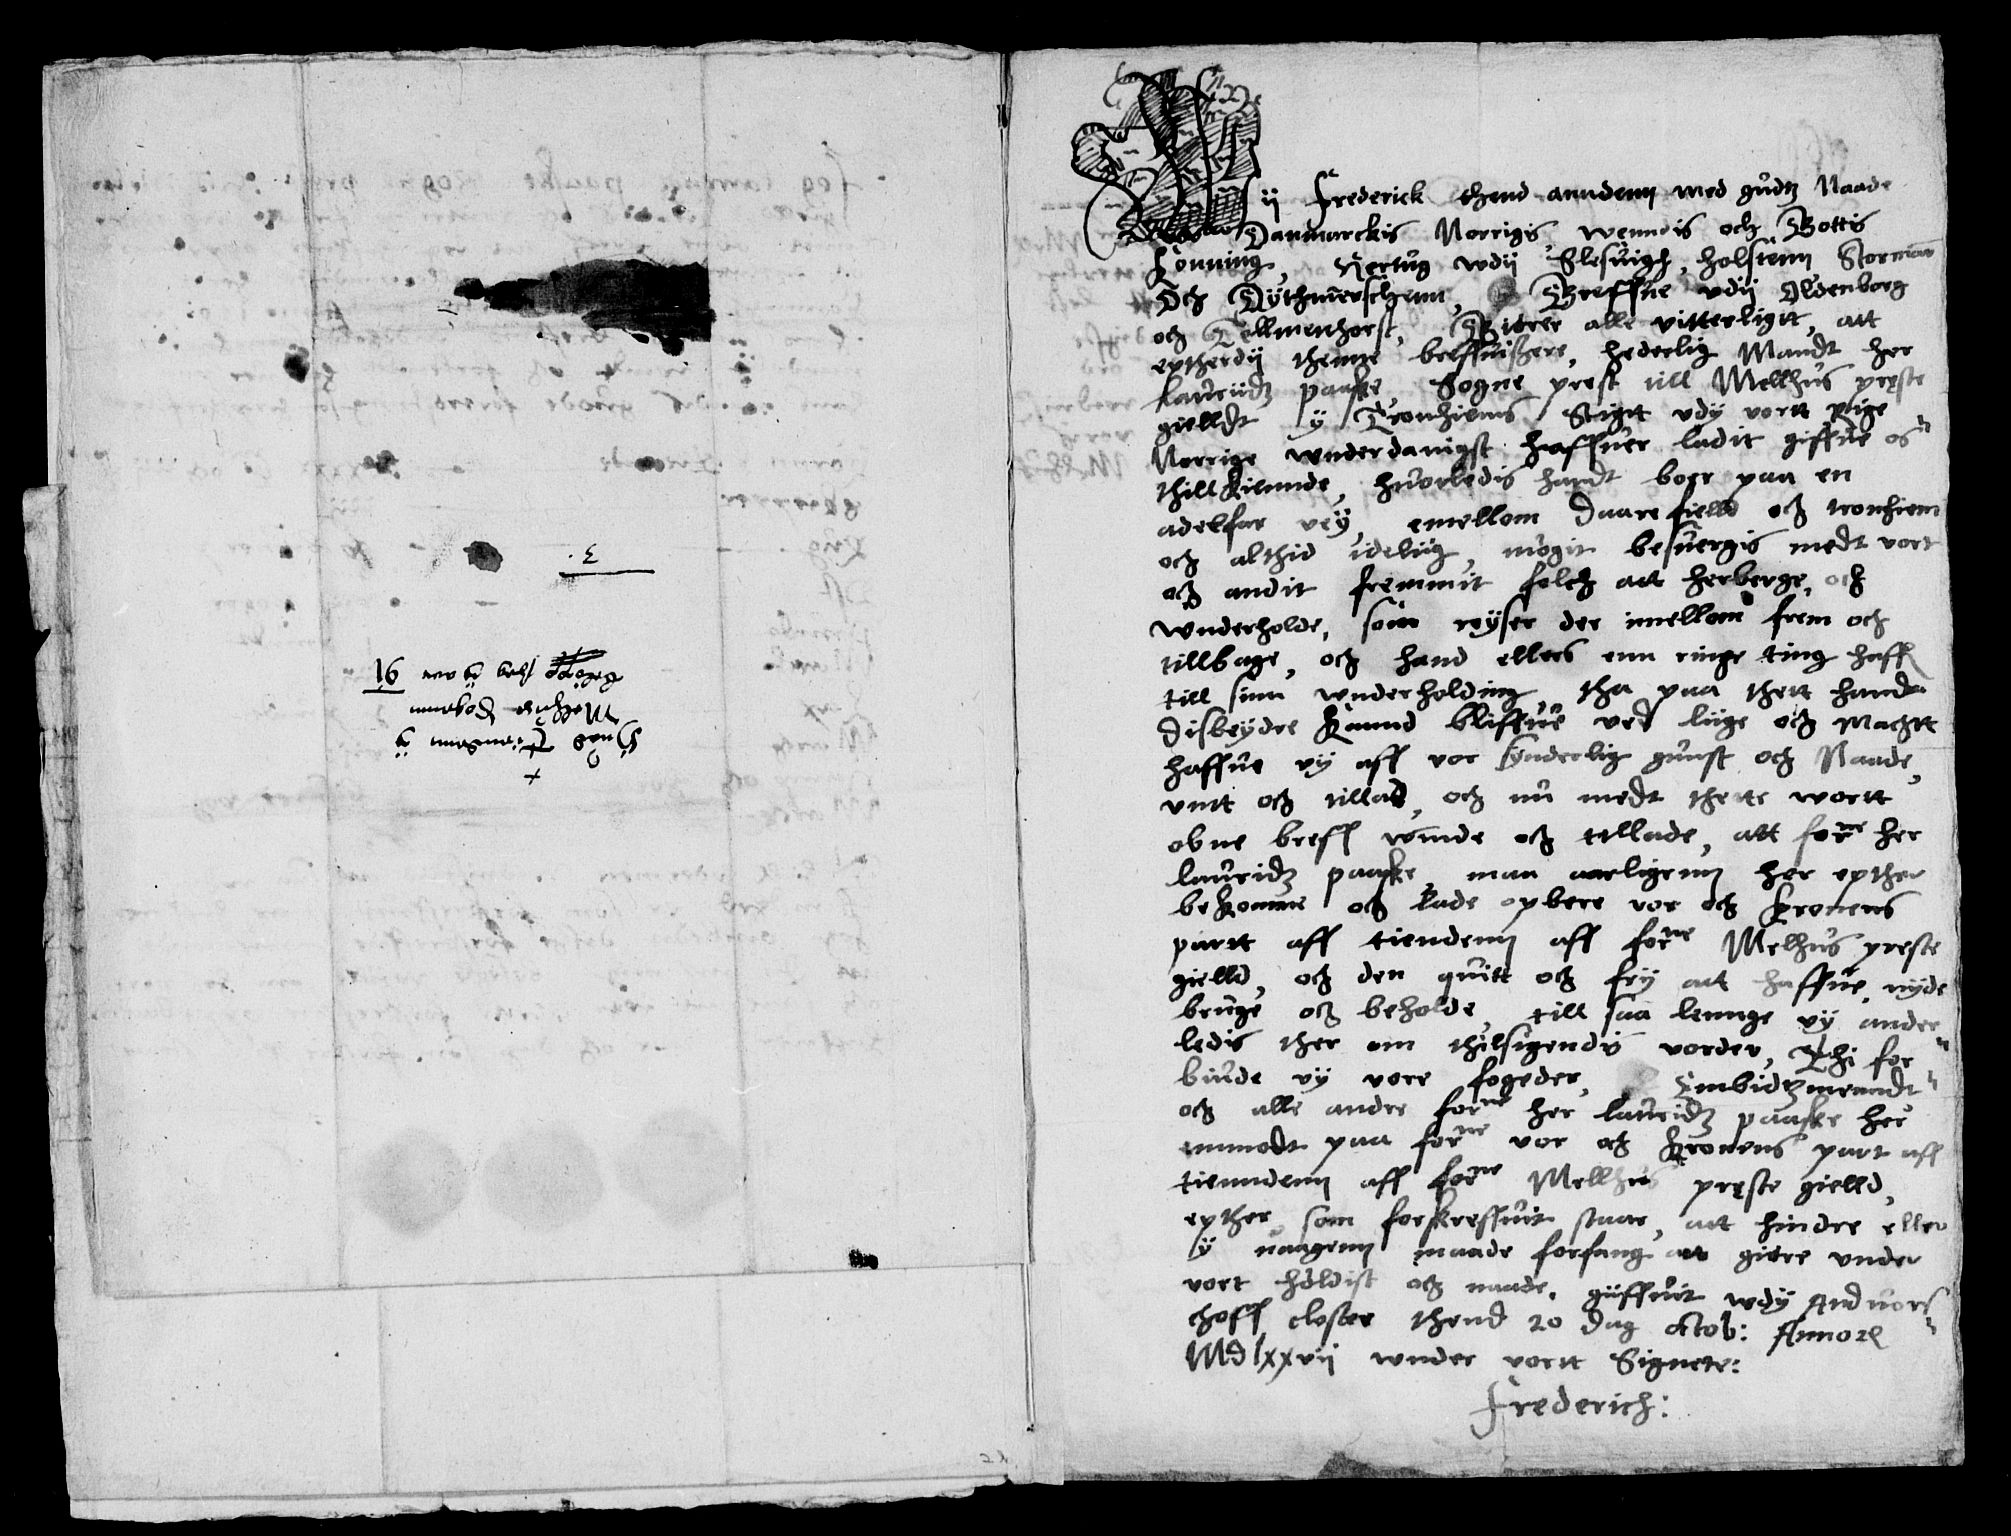 3.
+
Huad Tiendenn ÿ
Melhus Sogenn
Beløpp sig ÿ aar 91
Wÿ Frederick thend anndenn med gudtz Naade
Danmarckis Norrigis, wenndis och Gottis
Konning, Hertug wdÿ Slesuigh, holstenn Storman
Och Dÿthmerschenn, Greffue vdÿ Oldenborg
och Dellmenhorst, Giøre alle vitterligit, att
eptherdÿ thenne breffuißere, hederlig Mandt her
lauridtz paaske, Sogne prest till Mellhus preste
gielldt ÿ Tronhiems Stigtt vdÿ vortt Rige
Norrige wnderdanigst haffuer ladit giffue os
thillkiennde, huorledis handt boer paa en
adelfar veÿ, emellom Daarefielld och tronhiem
och althid ideliig, mögit besuergis medt vort
och andit fremmit folch att herberge, och
wnderholde, som reÿser der imellom frem och
tillbage, och hand ellers enn ringe ting haff
till sinn wnderholding, tha paa thett hand
disbeÿdre kannd bliffue ved liige och Macht
haffue vÿ aff vor sÿnderlig gunst och Naade,
vntt och tillad, och nu medt thette wortt
obne breff wnde och tillade, att forne her
lauridtz paaske, maa aarligenn her epther
bekomme och lade opbere vor och Kronens
partt aff tiendenn aff forne Melhus preste
gielld, och den quitt och frÿ att haffue, nÿde
bruge och beholde, till saa lennge vÿ ander
ledis ther om thilsigendis vorder, Thi for
biude vÿ vore fogeder, Embidtzmenndt
och alle andre forne her lauridtz paaske her
emmodt paa forne vor och Kronens part aff
tienndenn aff forne Mellhus preste gielld,
epther som forskreffuit staar, att hindre eller
ÿ naagenn maade forfang att giøre vnder
vort huldist och naade. giiffuit wdÿ Anduor
schoff closter thend 20 dag octob: Anno ꝛc
MDlxxvij wnder vortt Signete:
Frederich: